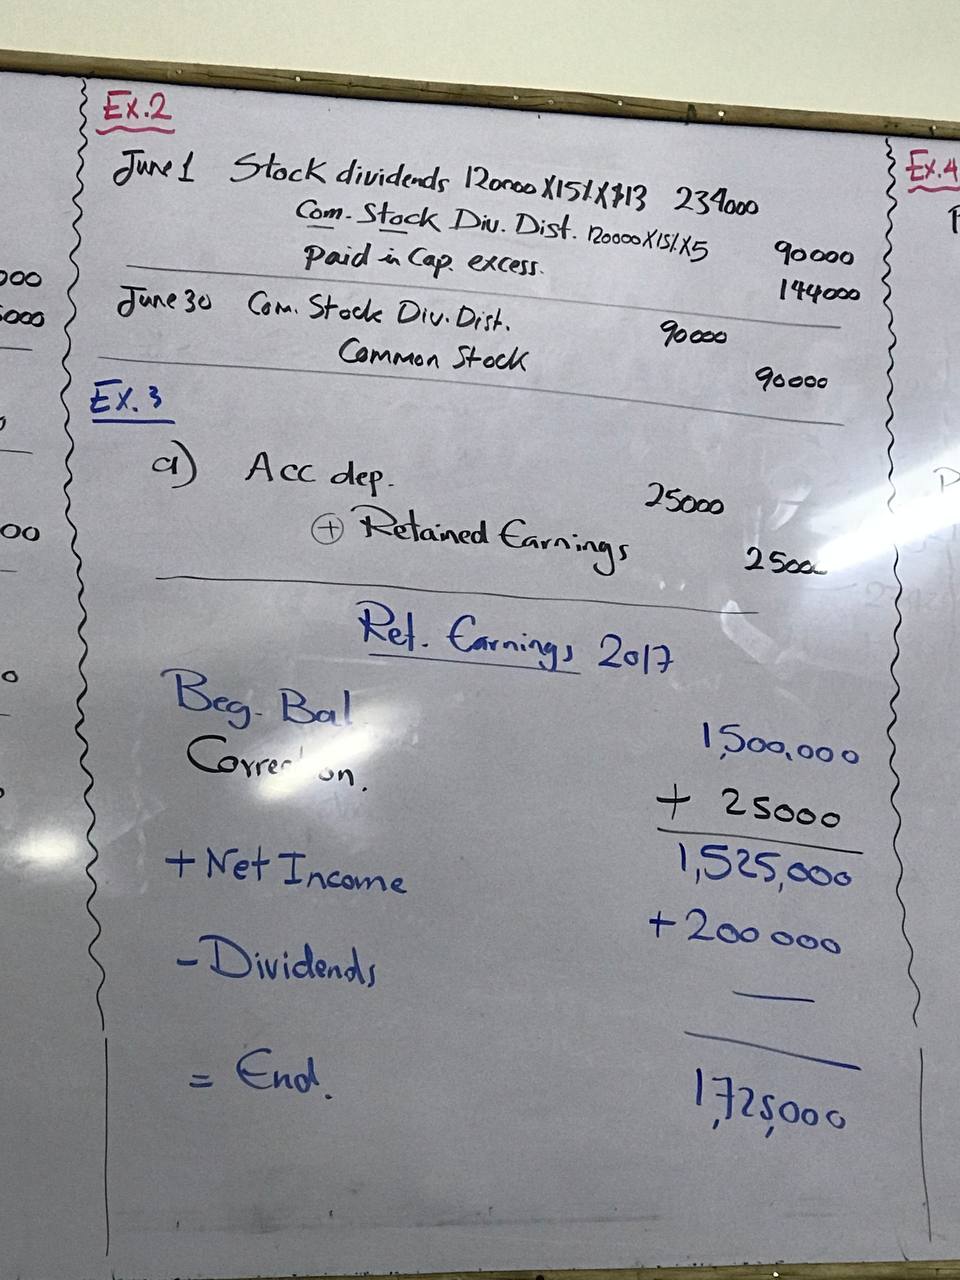 Ex.2
June 1 Stock dividends 120000X15%X$13 234000
Com. Stock Div. Dist. 120000X15%X5 90000
Paid in Cap. excess. 144000
June 30 Com. Stock Div. Dist. 90000
Common Stock 90000
Ex.3
a) Acc dep. 25000
+ Retained Earnings 25000
Ret. Earnings 2017
Beg. Bal 1,500,000
Correction. + 25000
1,525,000
+ Net Income +200 000
- Dividends —
= End. 1,725,000
Ex.4
000
5000
00